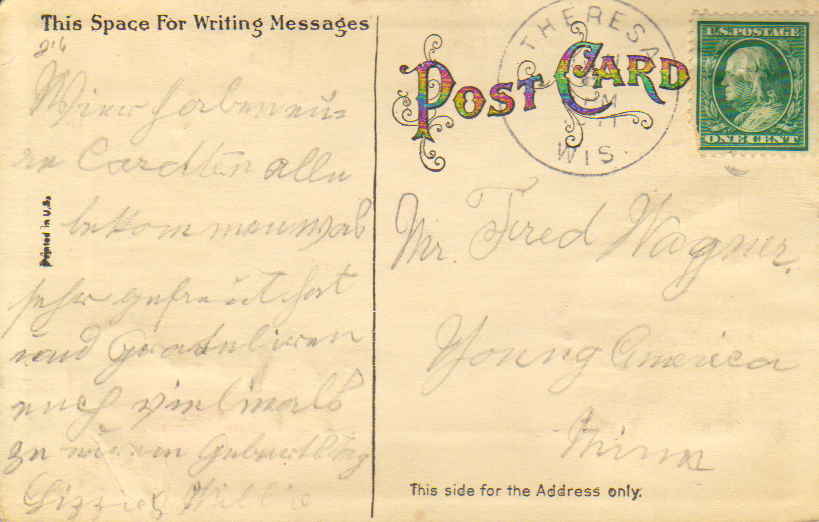 This Space For Writing Messages
Wier haben eu-
re Cardten alle
bekommen was
sehr gefreut hat
und Gratuliren
euch vielmals
zu
Geburtstag
Lizzie & Willie
Printed in U.S.
POST CARD
THERESA
PM
WIS.
U.S. POSTAGE
ONE CENT
Mr. Fred Wagner,
Young America
Minn
This side for the Address only.